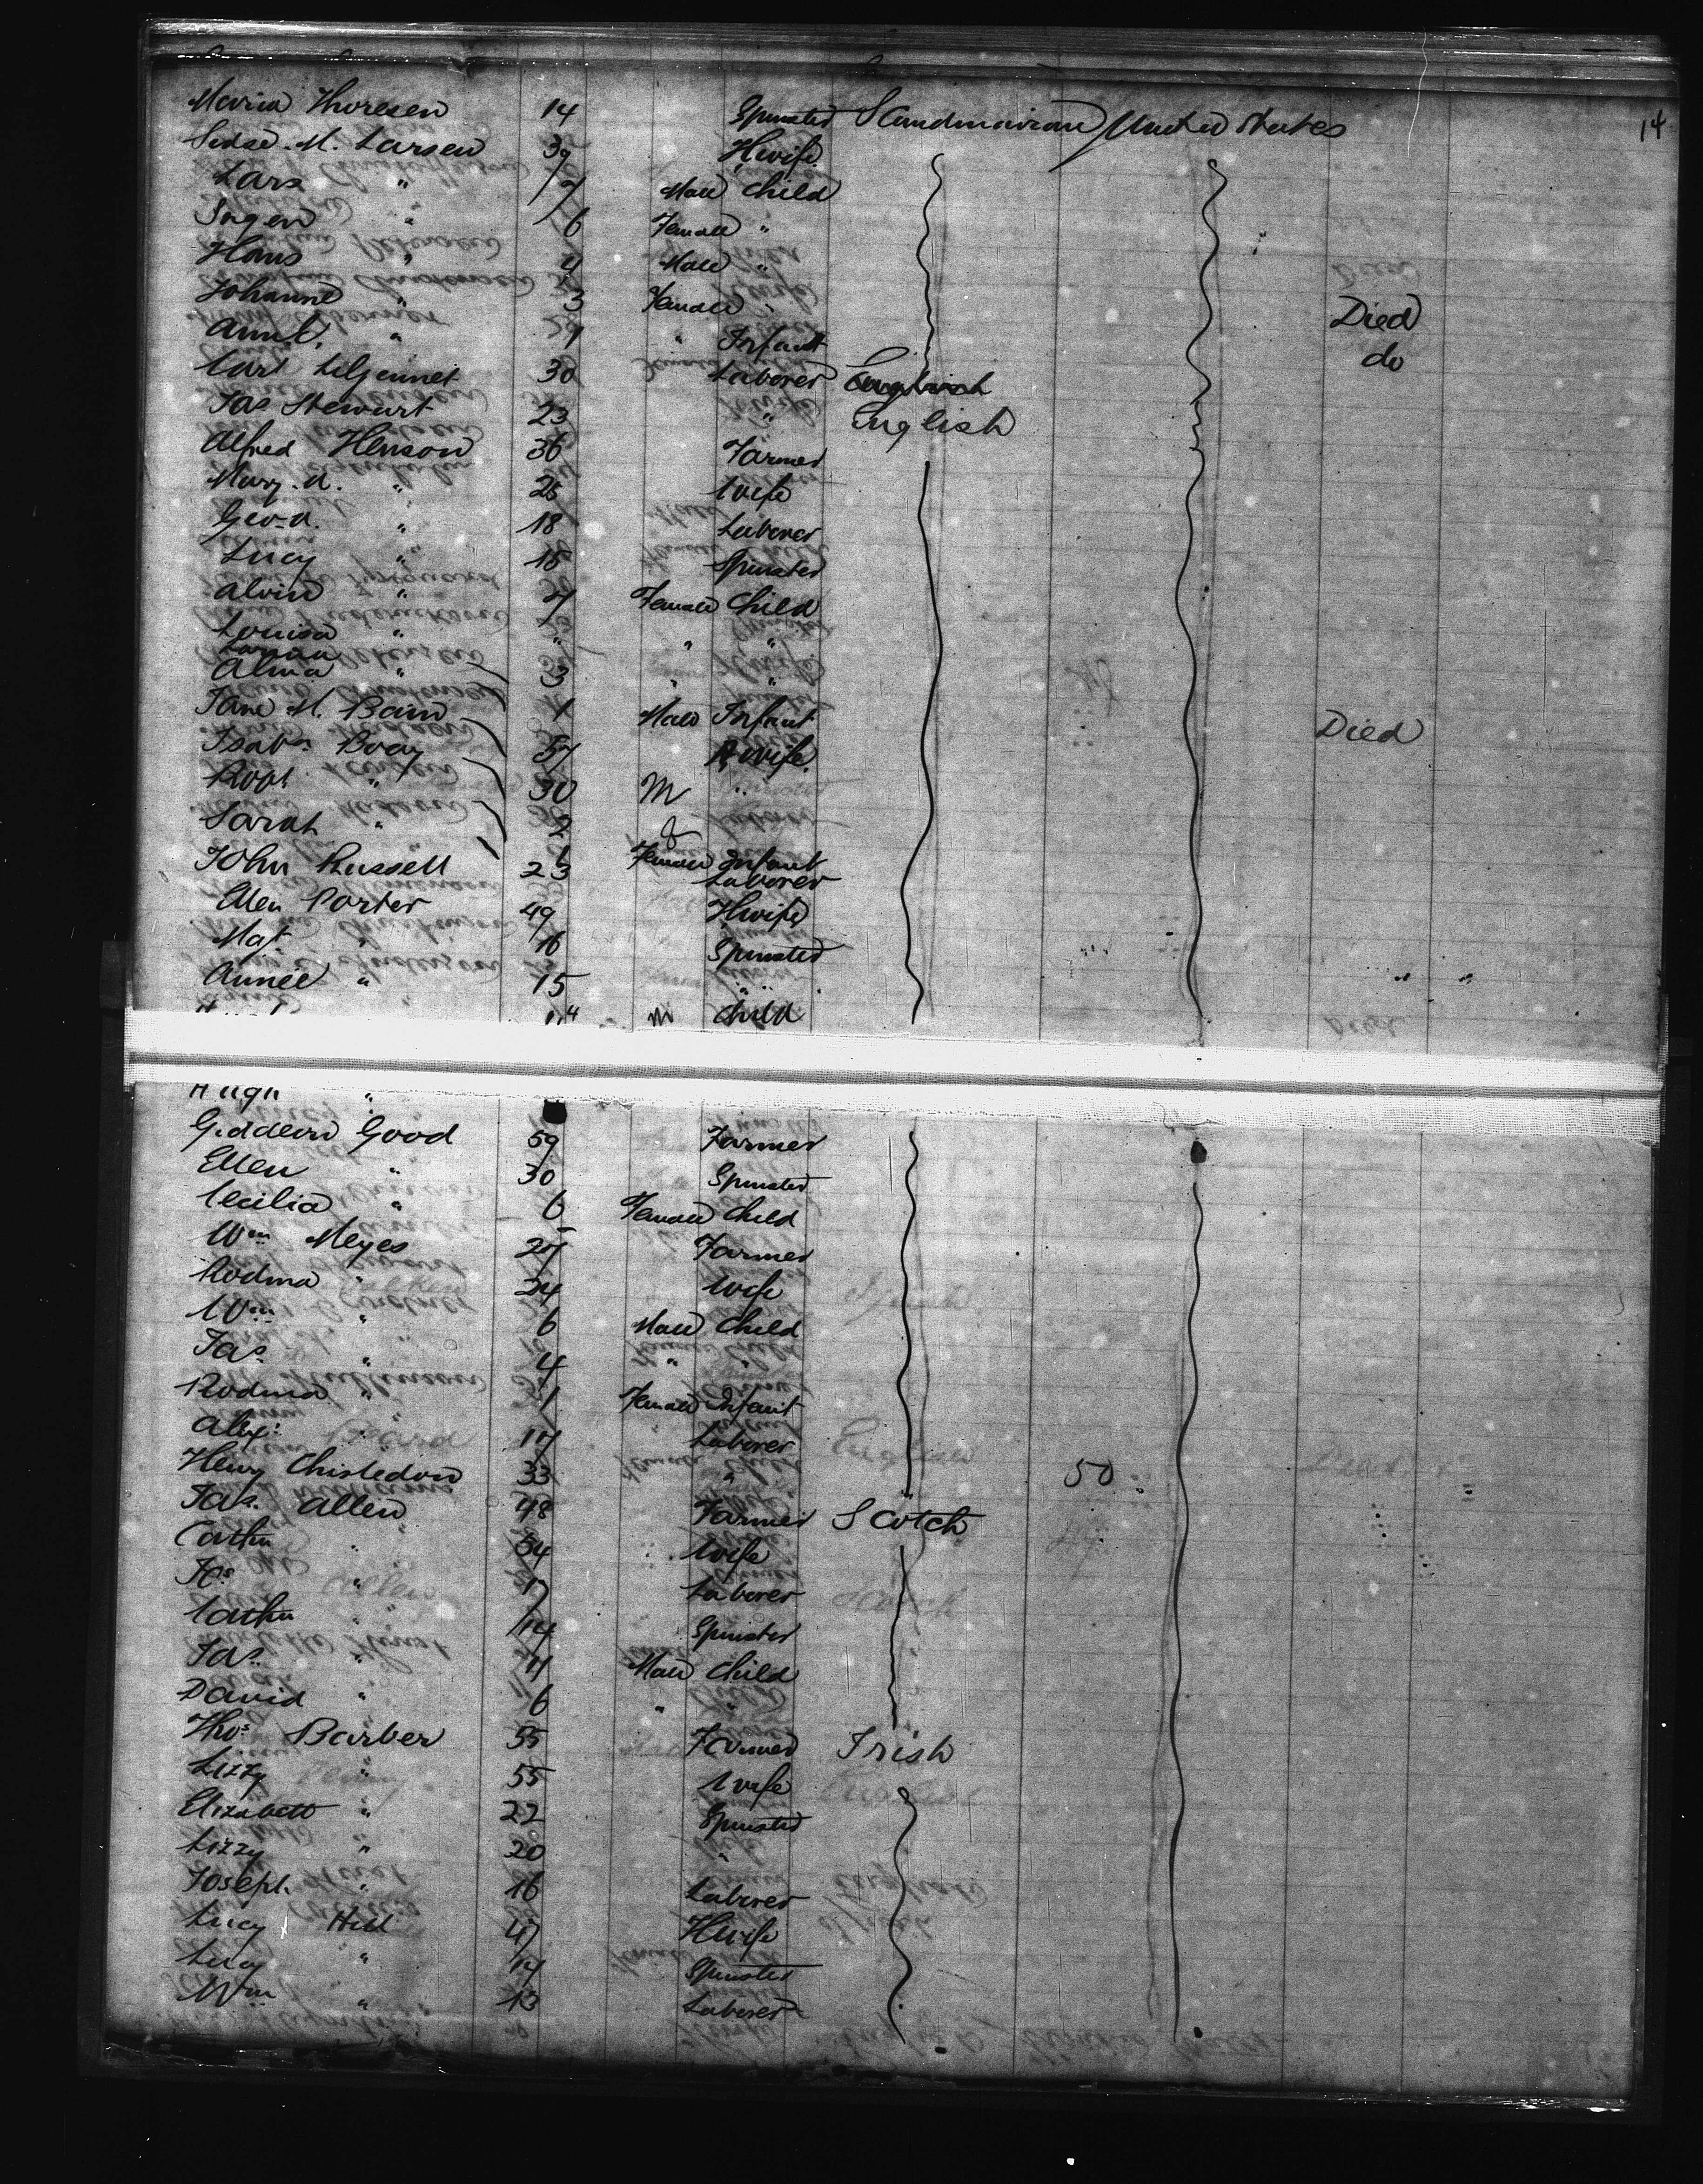 14
Maria Thoresen 14 Spinster Scandinavian United States
Sidse M. Larsen 39 Hwife
Lars " 7 Male Child
Ingen " 6 Female "
Hans " 4 Male "
Johanne " 3 Female " Died
Ann C. " 1 " Infant do
Carl Liljennet 30 Laborer
Jas Stewart 23 " English
Alfred Henson 36 Farmer
Mary A. " 25 Wife
Geo. A. " 18 Laborer
Lucy " 15 Spinster
Alvin " 7 Female Child
Louisa " " " "
Alma " 3 " "
Jane M. Bain 1 Male Infant Died
Isab. Boay 57 Hwife
Robt " 30 M "
Sarah " 2 f
Female Infant
John Russell 23 Laborer
Ellen Porter 49 Hwife
Mag. " 16 Spinster
Annie " 15 "
M Child
Hugh "
Giddeon Good 59 Farmer
Ellen " 30 Spinster
Cecilia " 6 Female Child
Wm Meyes 27 Farmer
Rodina " 24 Wife
Wm " 6 Male Child
Jas " 4 " "
Rodina " 1 Female Infant
Alex. " 17 Laborer
Henry Chisledon 33 " 50
Jas. Allen 48 Farmer Scotch
Cathn " 54 Wife
Jas " 17 Laborer
Cathn " 14 Spinster
Jas. " 11 Male Child
David " 6 " "
Thos Barber 55 Farmer Irish
Lizzy " 55 Wife
Elizabeth " 22 Spinster
Lizzy " 20 "
Joseph " 16 Laborer
Lucy Hill 47 Hwife
Lucy " 14 Spinster
Wm " 13 Laborer